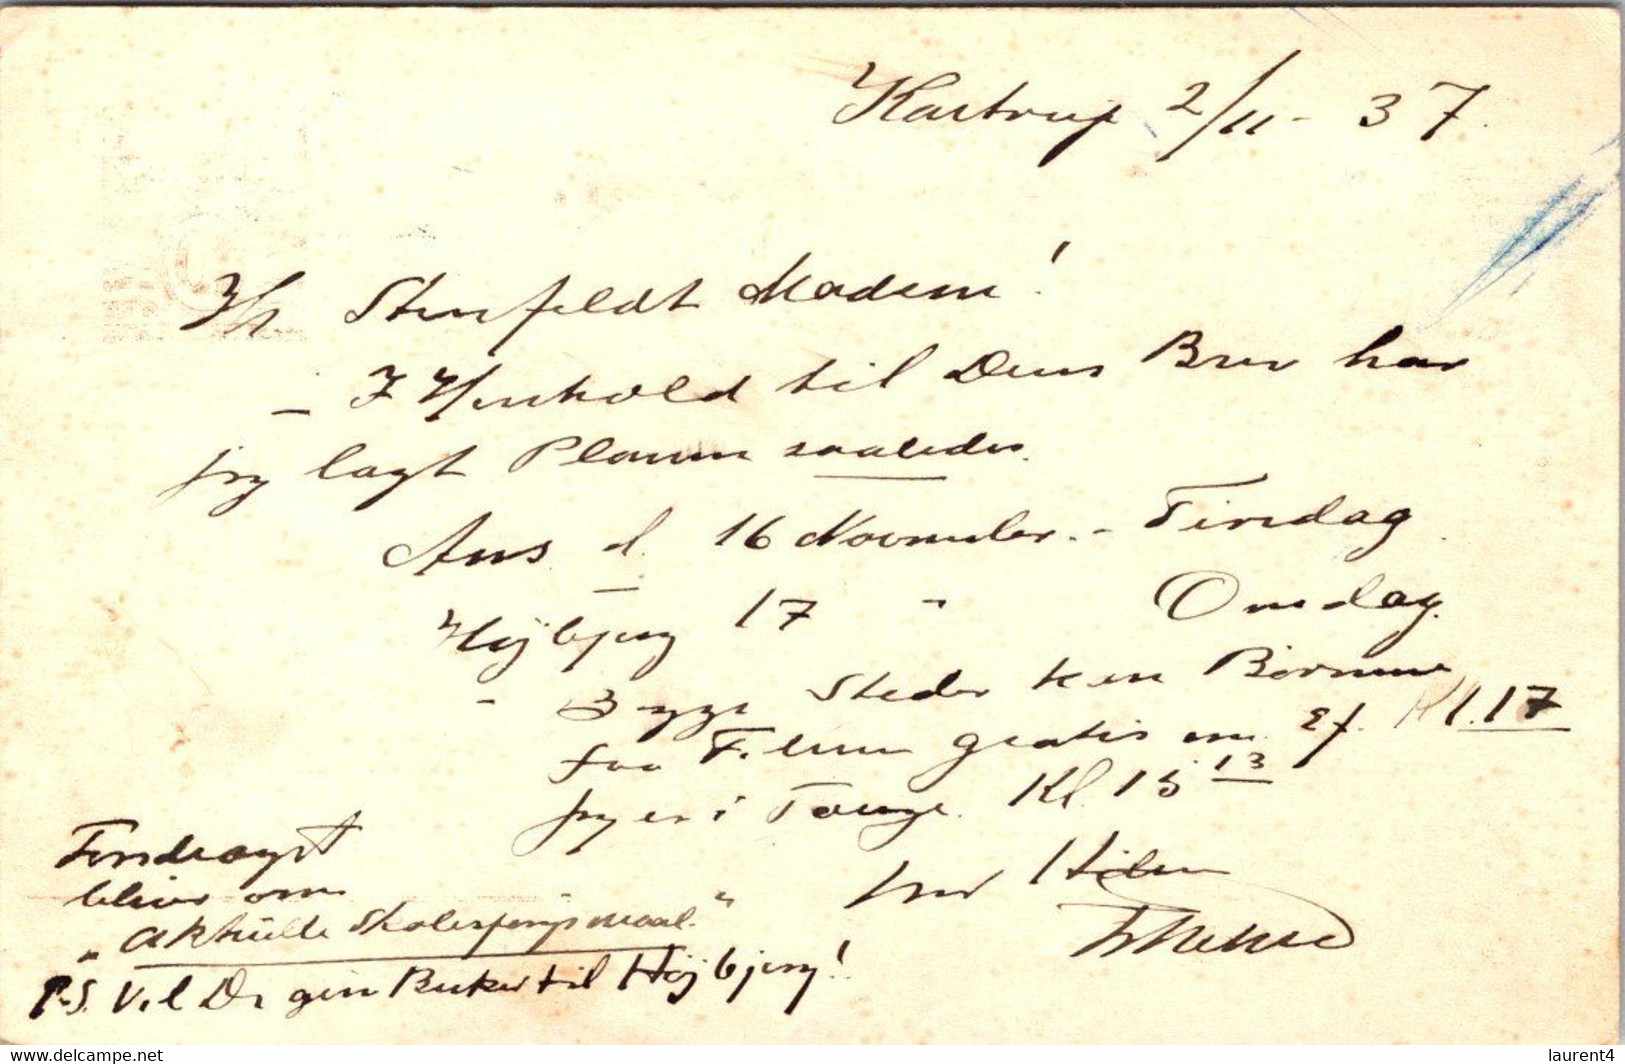 Kastrup 2/11 - 37.
Hr Stenfeldt Madsen!
- I Henhold til Deres Brev har
jeg lagt Planen saaledes.
Ans d. 16 November. - Tirsdag
Højbjerg 17 " Onsdag.
- Begge Steder kan Børnene
faa Filmen gratis om Ef. Kl. 17
jeg er i Tange. Kl. 15 13
Med Hilsen
Foredraget
bliver om
"Aktuelle Skolespørgsmaal."
P.S. Vil De give Besked til Højbjerg!
laurent4
www.delcampe.net